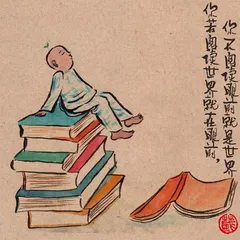 你不阅读眼前就是世界
你若阅读世界就在眼前，